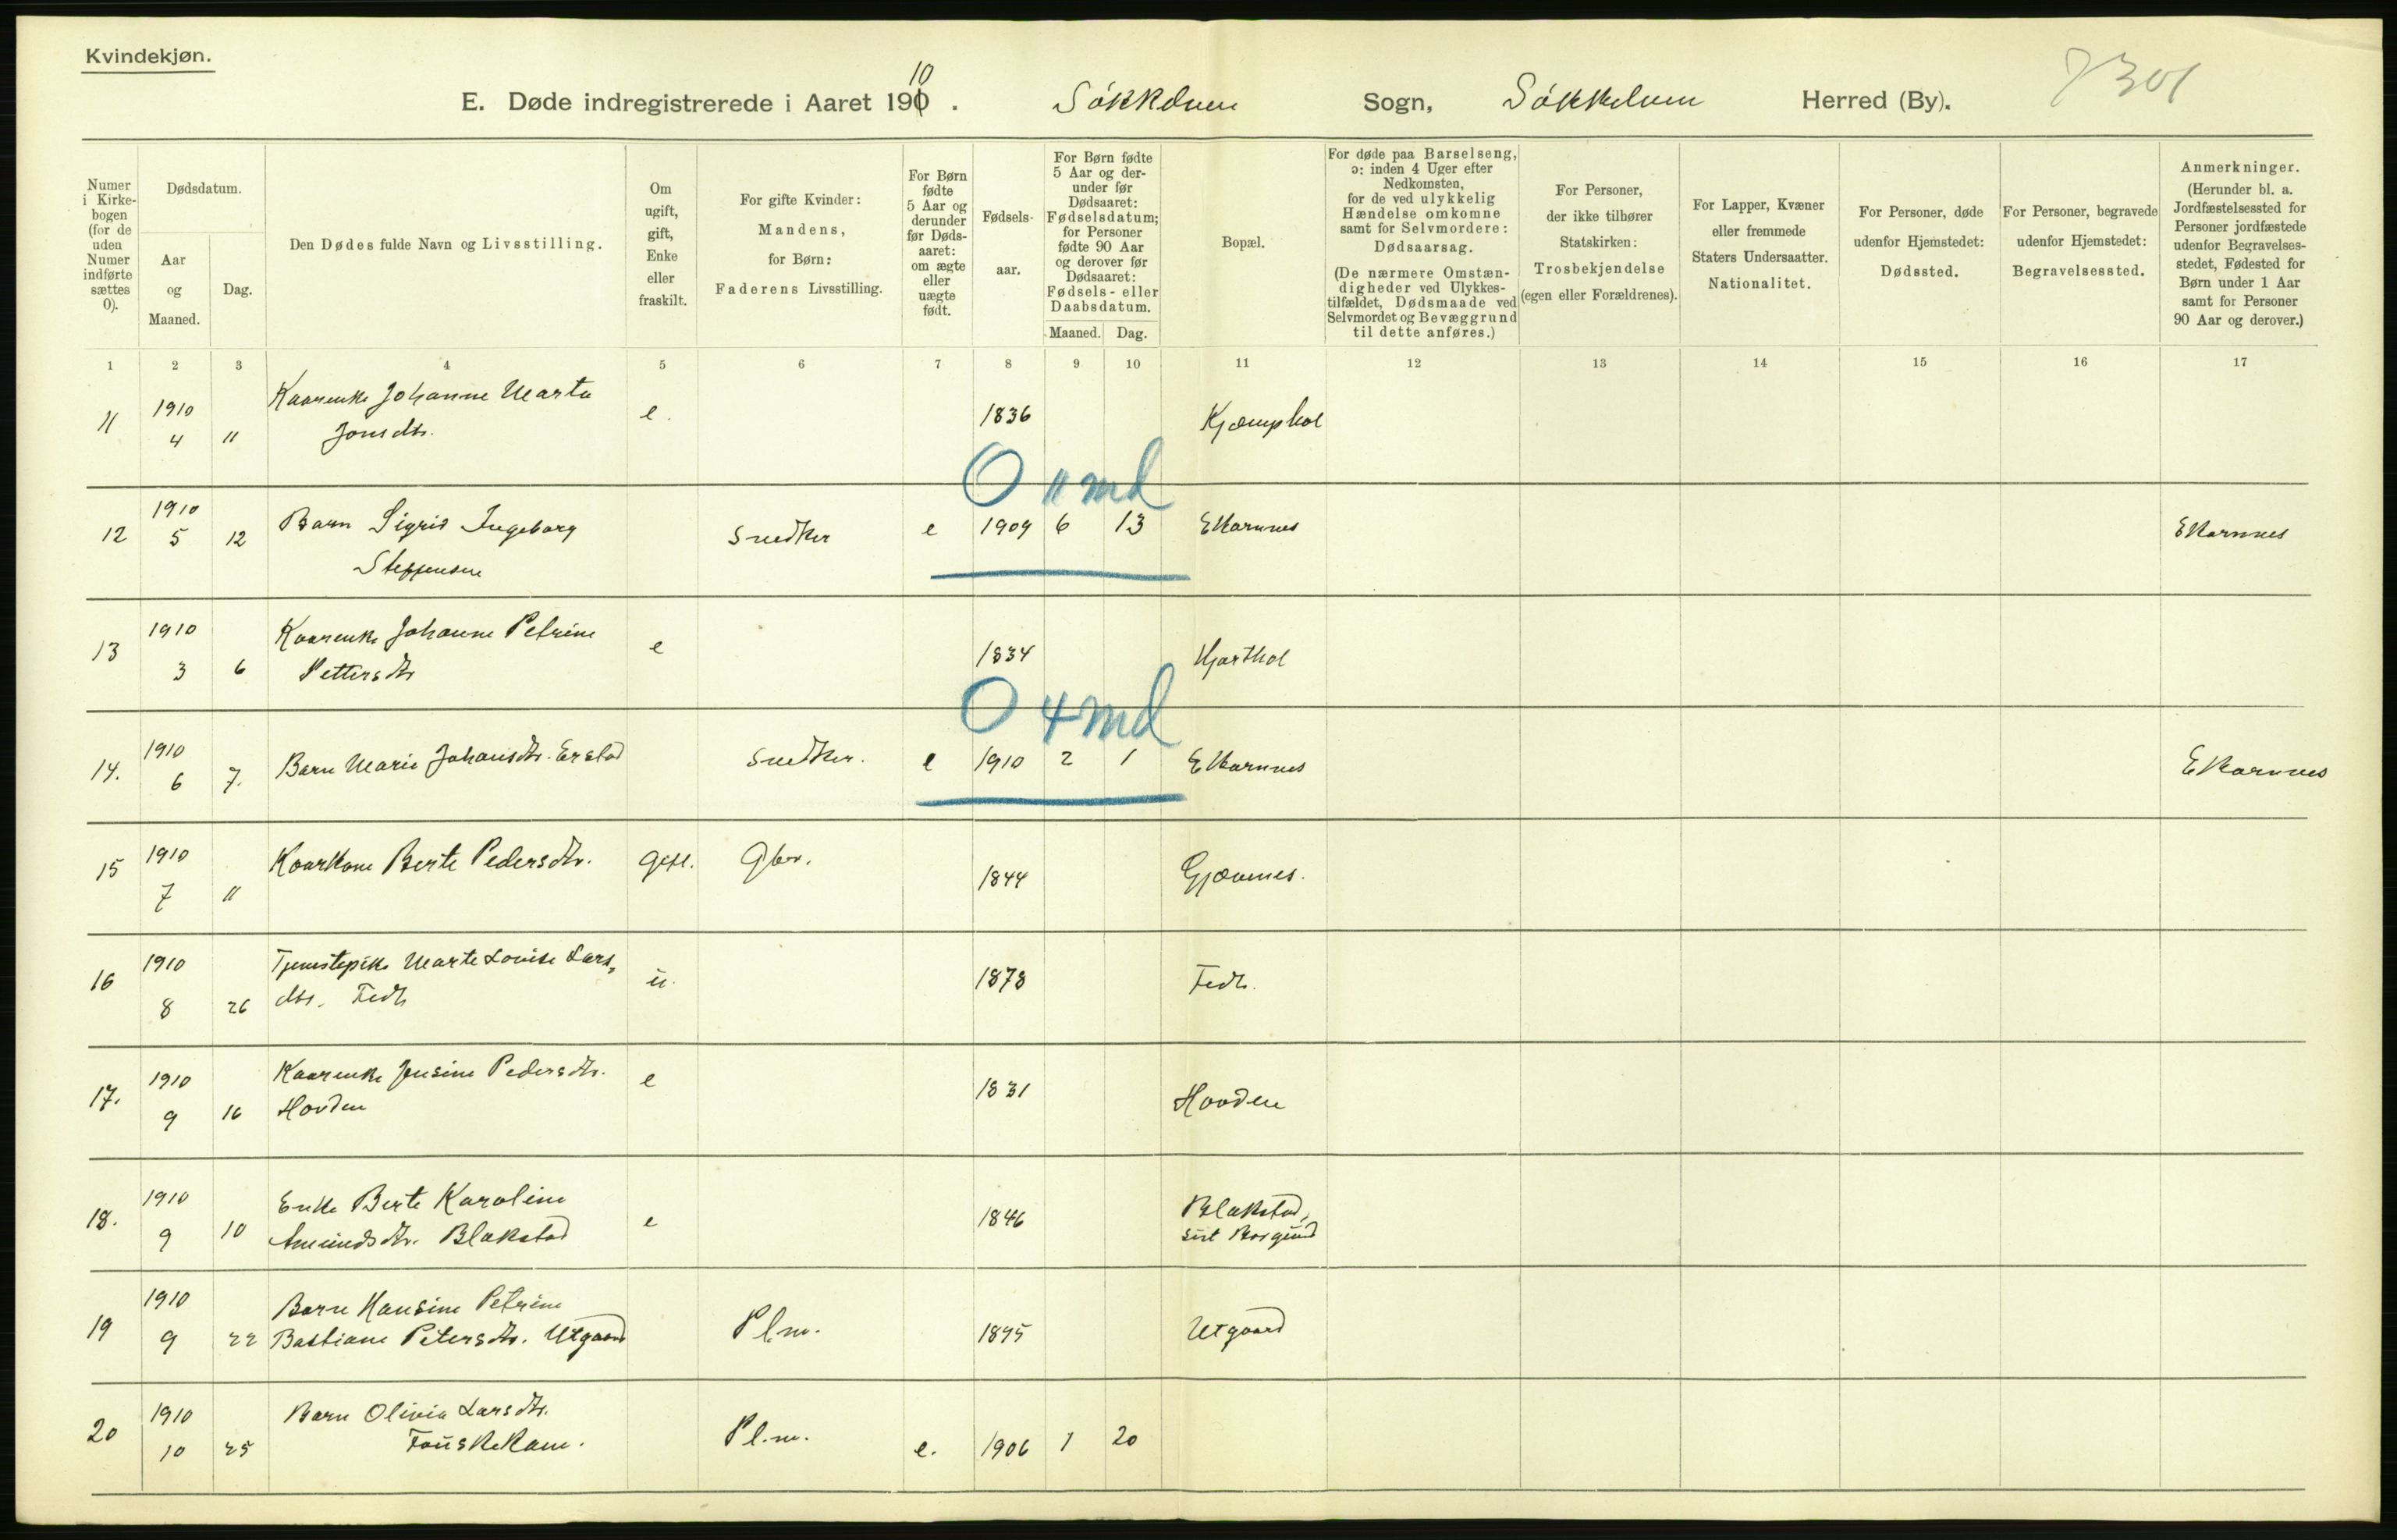 Kvindekjøn.
E. Døde indregistrerede i Aaret 1910. Søkkelven Sogn, Søkkelven Herred (By). 7301
Numer i Kirkebogen (for de uden Numer indførte sættes 0).
Dødsdatum.
Aar og Maaned.
Dag.
Den Dødes fulde Navn og Livsstilling.
Om ugift, gift, Enke eller fraskilt.
For gifte Kvinder: Mandens, for Børn: Faderens Livsstilling.
For Børn fødte 5 Aar og derunder før Dødsaaret: om ægte eller uægte født.
Fødselsaar.
For Børn fødte 5 Aar og derunder før Dødsaaret: Fødselsdatum; for Personer fødte 90 Aar og derover før Dødsaaret: Fødsels- eller Daabsdatum.
Maaned. Dag.
Bopæl.
For døde paa Barselseng, ɔ: inden 4 Uger efter Nedkomsten, for de ved ulykkelig Hændelse omkomne samt for Selvmordere: Dødsaarsag.
(De nærmere Omstændigheder ved Ulykkestilfældet, Dødsmaade ved Selvmordet og Bevæggrund til dette anføres.)
For Personer, der ikke tilhører Statskirken: Trosbekjendelse (egen eller Forældrenes).
For Lapper, Kvæner eller fremmede Staters Undersaatter. Nationalitet.
For Personer, døde udenfor Hjemstedet: Dødssted.
For Personer, begravede udenfor Hjemstedet: Begravelsessted.
Anmerkninger. (Herunder bl. a. Jordfæstelsessted for Personer jordfæstede udenfor Begravelsesstedet, Fødested for Børn under 1 Aar samt for Personer 90 Aar og derover.)
1 2 3 4 5 6 7 8 9 10 11 12 13 14 15 16 17
11 1910 4 11 Kaarenke Johanne Marta e. 1836
Jonsdtr.
0 11 md
12 1910 5 12 Barn Sigrid Ingeborg Snedker e 1909 6 13 Ekornnes Ekornnes
Steffensen
13 1910 3 6 Kaarenke Johanne Petrine e 1834
Pettersdtr
0 4 md
14. 1910 6 7. Barn Marie Johansdtr. Erstad Snedker. e 1910 2 1 Ekornnes Ekornnes
15 1910 7 11 Kaarkone Berte Pedersdtr. Gift. Gbr. 1844
16 1910 8 26 Tjenestepike Marte Lovise Lars- u. 1878
dtr.
17. 1910 9 16 Kaarenke Jensine Pedersdtr. e 1831 Hovden
Hovden
18. 1910 9 10 Enke Berte Karoline e 1846 Blakstad,
Amundsdtr. Blakstad sist Borgund
19 1910 9 22 Barn Hansine Petrine Pl.m. 1895 Utgaard
Bastiane Petersdtr. Utgaard
20 1910 10 25 Barn Olivia Larsdtr. Pl.m. e. 1906 1 20